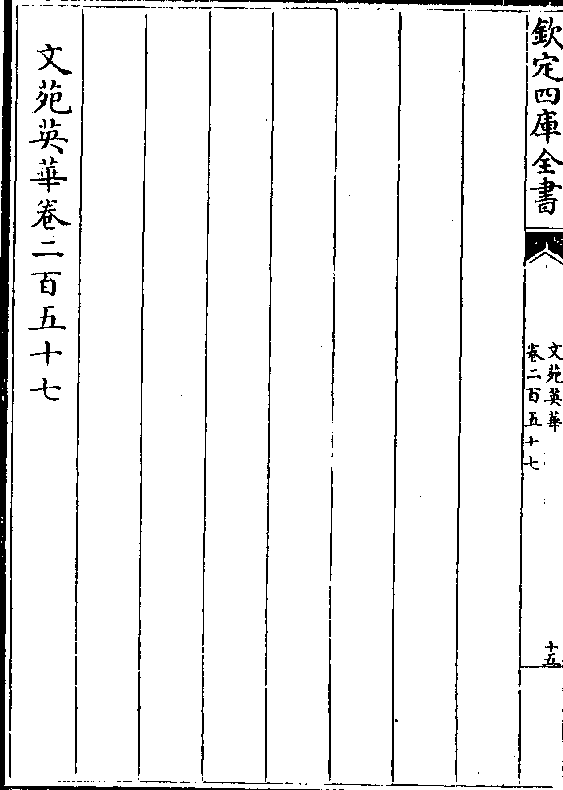 欽定四庫全書
文苑英華
卷二百五十七
十五
文苑英華卷二百五十七